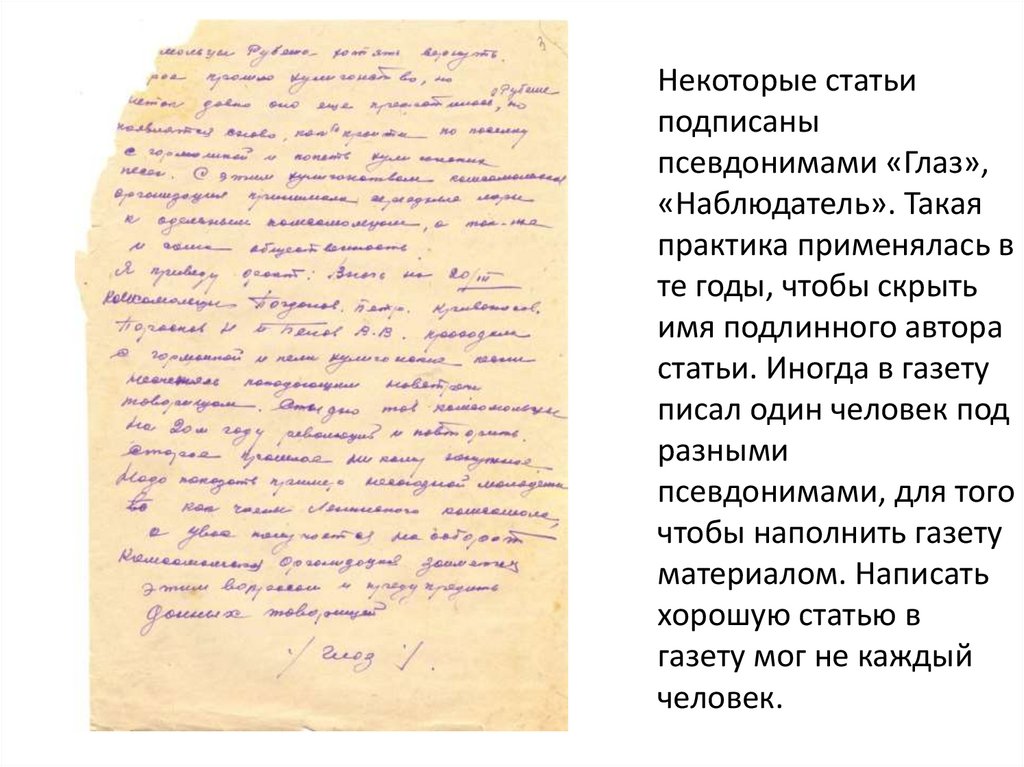 3
мольцы Рувета хотять вернуть.
рое прошло хулигонство, но
Рубеже
давно оно еще, но
появляется снова, как пройти по поселку
с гормошкой и попеть хулигонских
песен. С этим хулигонством комсомольская
организация принимала меры
к одельным комсомолцом, а так-же
и сама общественность.
Я приведу факт: Вночь на 20/III
Комсомольцы Богданов. Петр. Кривоносов.
Н и Белов В.В. проходили
с гормошкой и пели хулигонские песни
товарищам. Стыдно тов комсомольцы
На 20м году революций и повторить.
Старое прошлое ни кому ненужное
Надо показать пример несоюзной молодежи
как члены Ленинского комсомола,
а увас получается на оборот
Комсомольска организация займетесь
этим вопросом и предупредить
данных товарищей
/Глаз/.
Некоторые статьи
подписаны
псевдонимами «Глаз»,
«Наблюдатель». Такая
практика применялась в
те годы, чтобы скрыть
имя подлинного автора
статьи. Иногда в газету
писал один человек под
разными
псевдонимами, для того
чтобы наполнить газету
материалом. Написать
хорошую статью в
газету мог не каждый
человек.